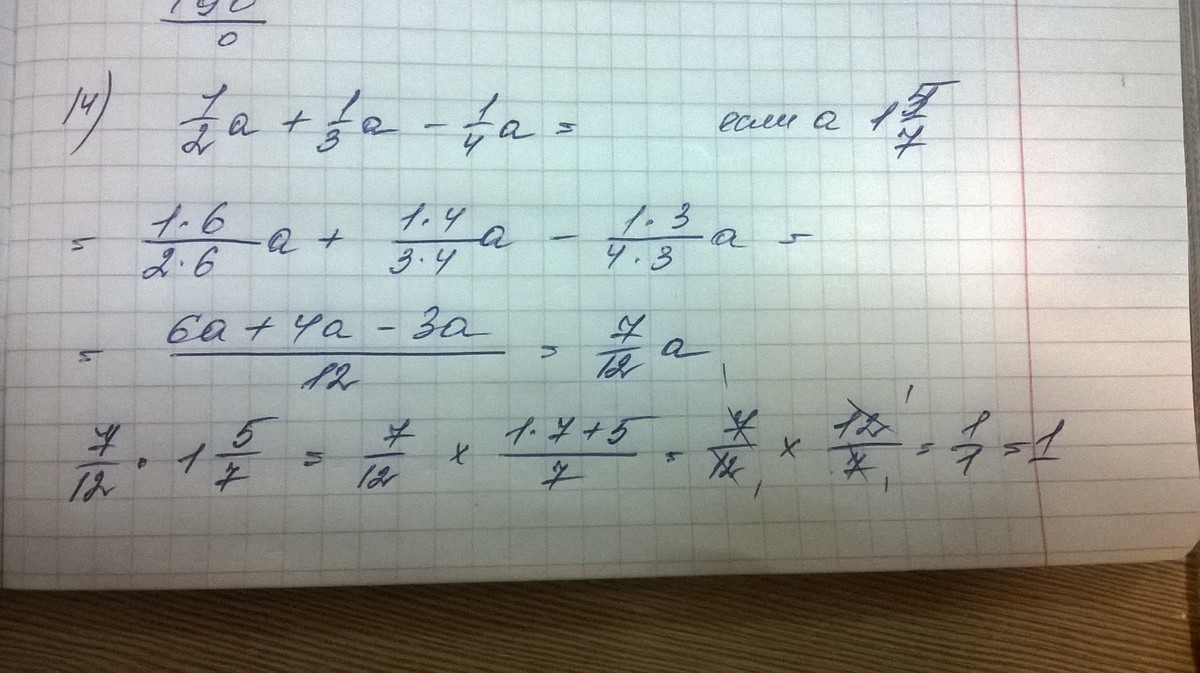 190
0
14) 1/2 a + 1/3 a - 1/4 a = если a 1 5/7
= 1·6/2·6 a + 1·4/3·4 a - 1·3/4·3 a =
= 6a + 4a - 3a/12 = 7/12 a
7/12 · 1 5/7 = 7/12 × 1·7+5/7 = 7/12 × 12/7 = 1/1 = 1